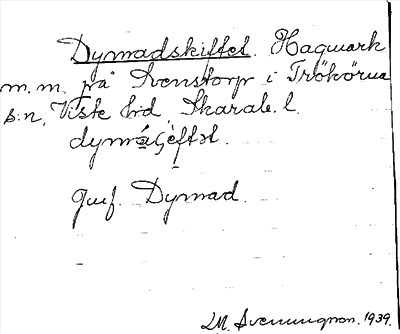 Dymadskiftet. Hagmark
m.m. på Svenstorp i Trökörna
s:n, Viste hd, Skarab. l.
Jmf. Dymad.
M. Svenungson. 1939.